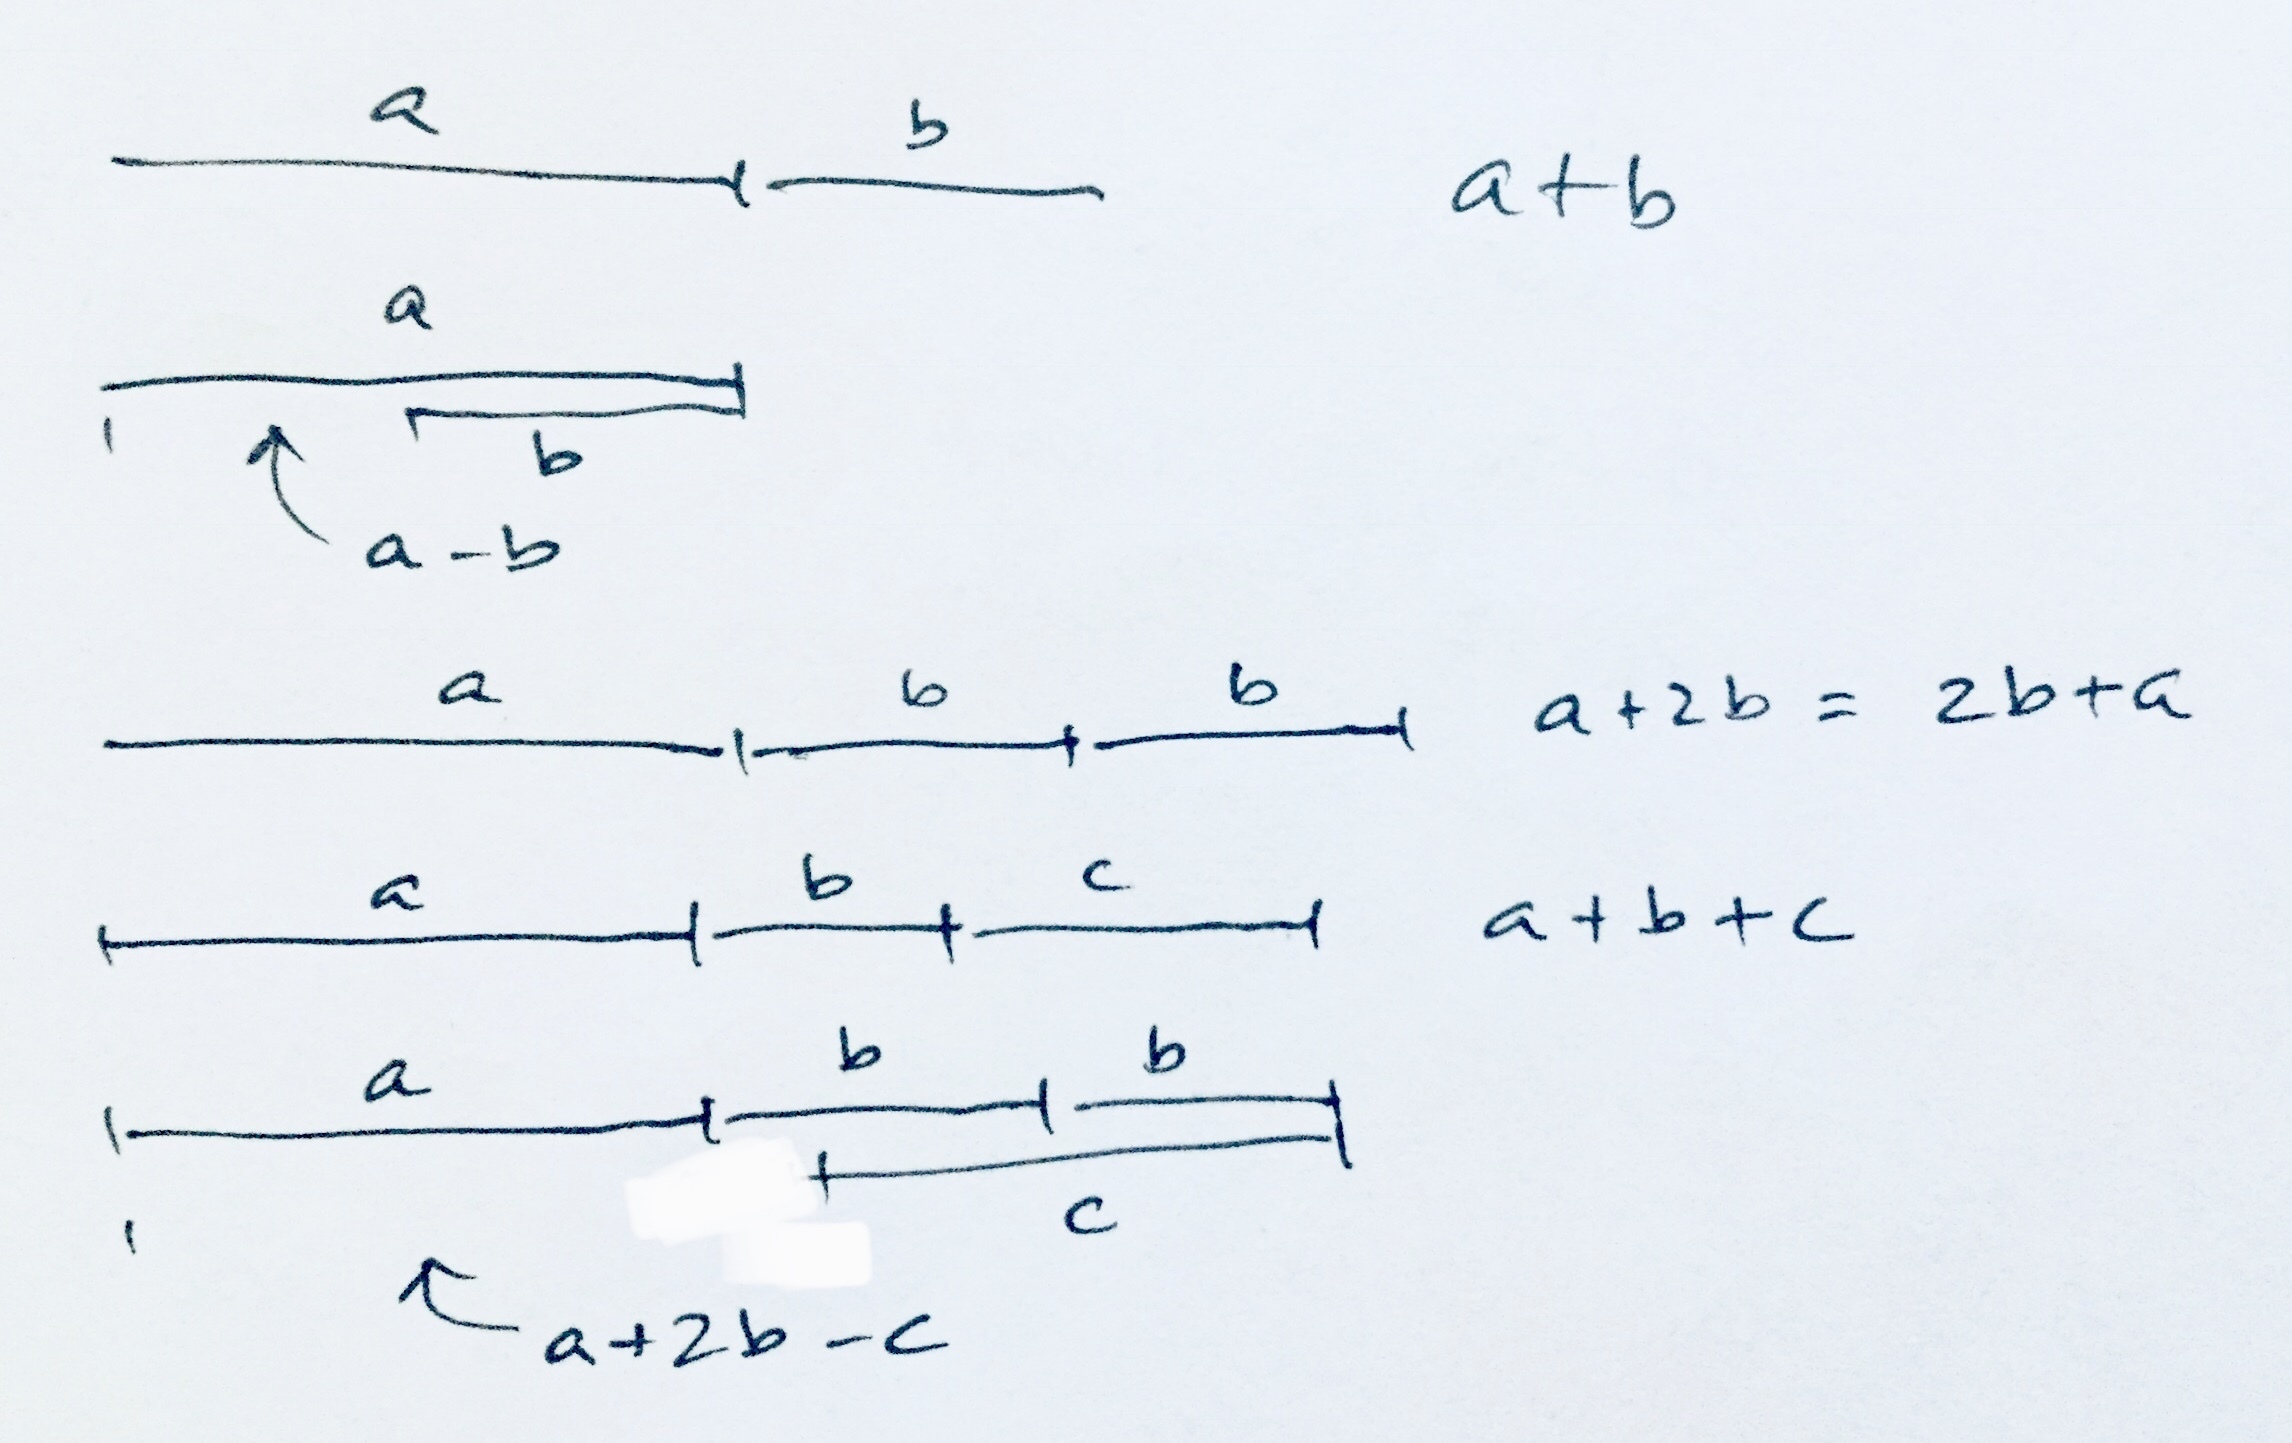 a b a+b
a
b
a-b
a b b a+2b = 2b+a
a b c a+b+c
a b b
c
a+2b-c